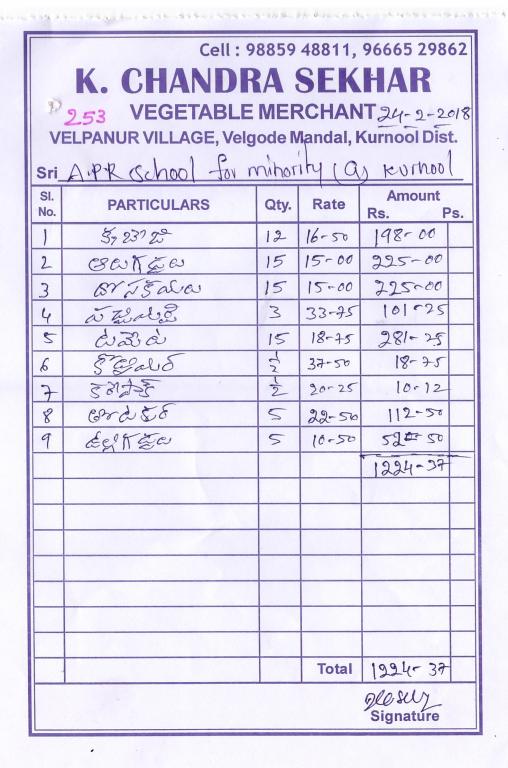 Cell : 98859 48811, 96665 29862
K. CHANDRA SEKHAR
253 VEGETABLE MERCHANT 24-2-2018
VELPANUR VILLAGE, Velgode Mandal, Kurnool Dist.
Sri A.P.R School for minority (G) Kurnool
Sl. No. PARTICULARS Qty. Rate Amount Rs. Ps.
1 12 16-50 198-00
2 ఆలుగడ్డలు 15 15-00 225-00
3 దోసకాయలు 15 15-00 225-00
4 పచ్చిమిర్చి 3 33-75 101-25
5 టమేటో 15 18-75 281-25
6 కొత్తిమీర ½ 37-50 18-75
7 ½ 20-25 10-12
8 5 22-50 112-50
9 ఉల్లిగడ్డలు 5 10-50 52-50
1224-37
Total 1224-37
Signature